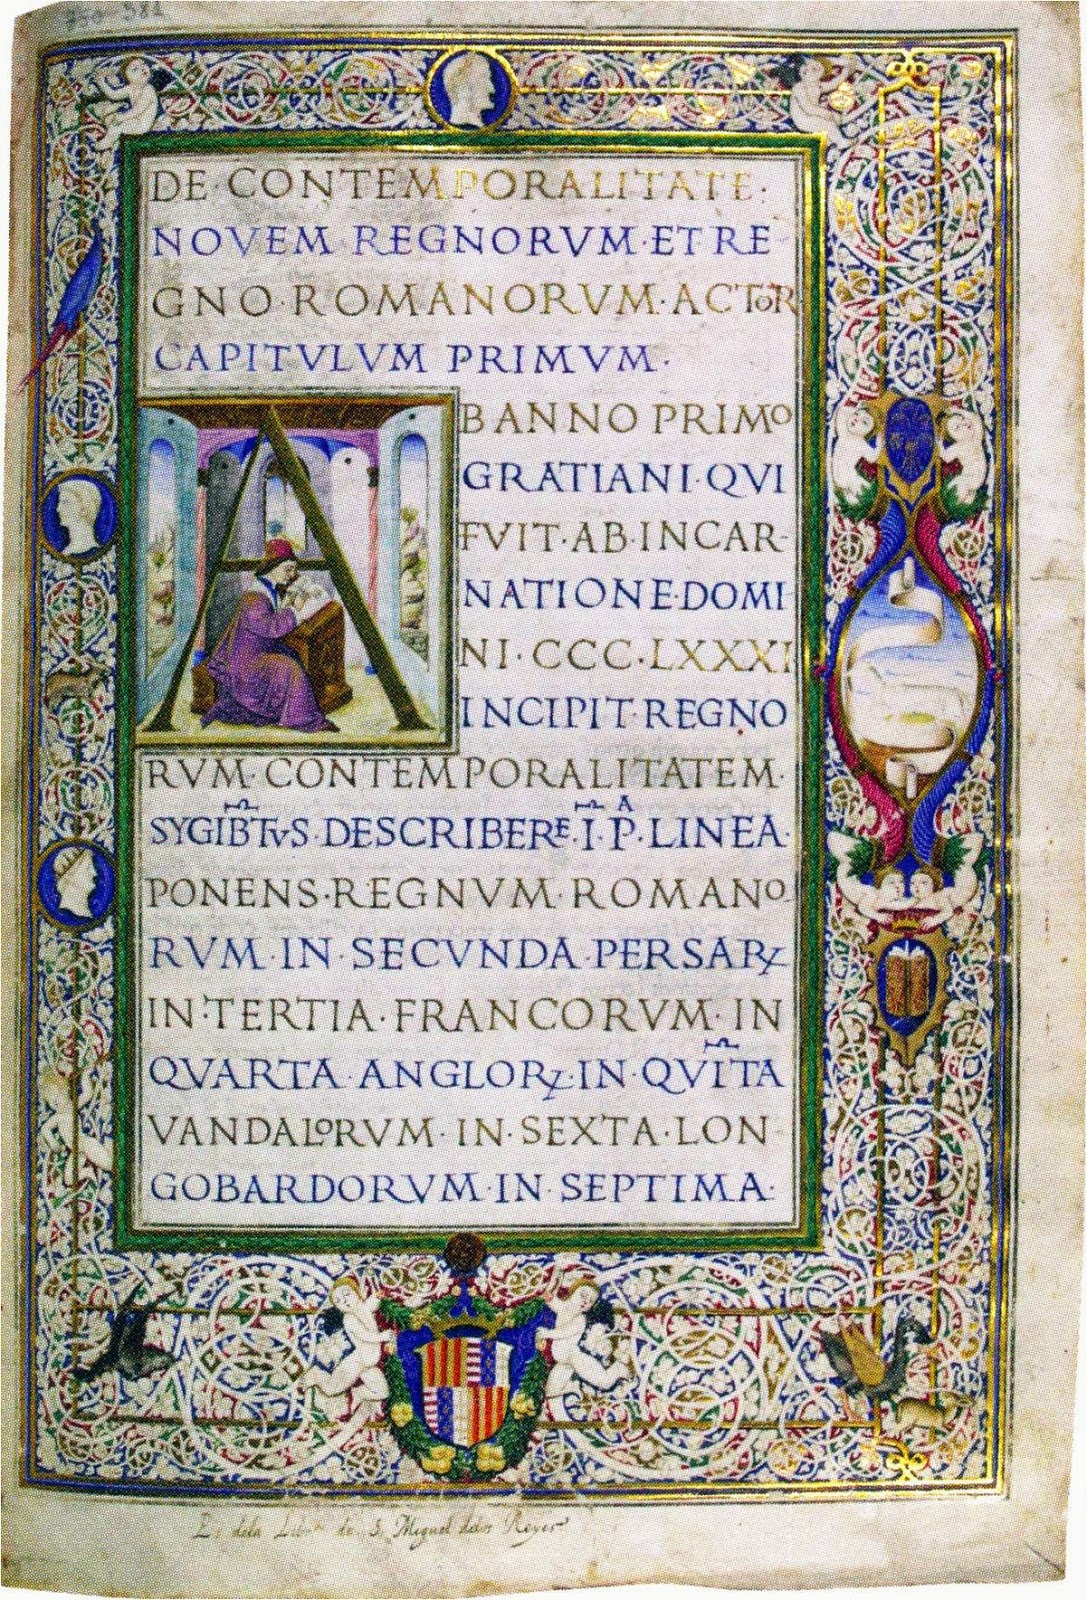 DE·CONTEMPORALITATE·
NOVEM REGNORVM·ET RE
GNO·ROMANORVM·ACToR
CAPITVLVM PRIMVM·
A
BANNO PRIMO
GRATIANI·QVI
FVIT·AB·INCAR-
NATIONE·DOMI
NI·CCC·LXXXI
INCIPIT·REGNO
RVM·CONTEMPORALITATEM·
SYGIB̅TVS·DESCRIBERE·I̅·Pᴬ·LINEA·
PONENS·REGNVM·ROMANO-
RVM·IN·SECVNDA·PERSAꝜ
IN·TERTIA·FRANCORVM·IN
QVARTA·ANGLOꝜ·IN·QVI̅TA
VANDALORVM·IN·SEXTA·LON-
GOBARDORVM·IN·SEPTIMA:
Es dela Libᵃ de S. Miguel delos Reyes